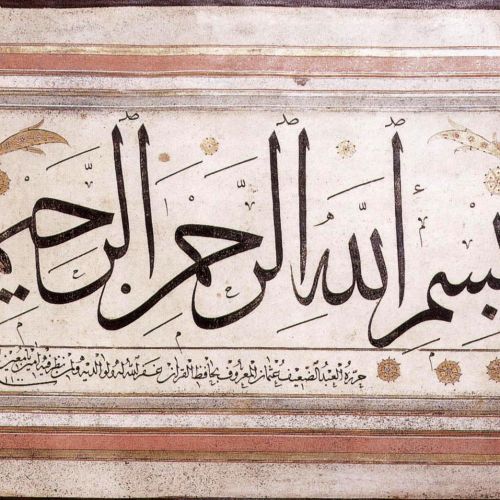 بسم الله الرحمن الرحيم
حرره العبد الضعيف عثمان المعروف بحافظ القرآن غفر الله له ولوالديه ولمن نظر فيه